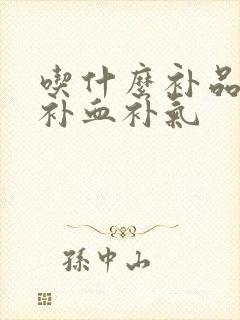 喫什麼补品
补血补氣
孫中山